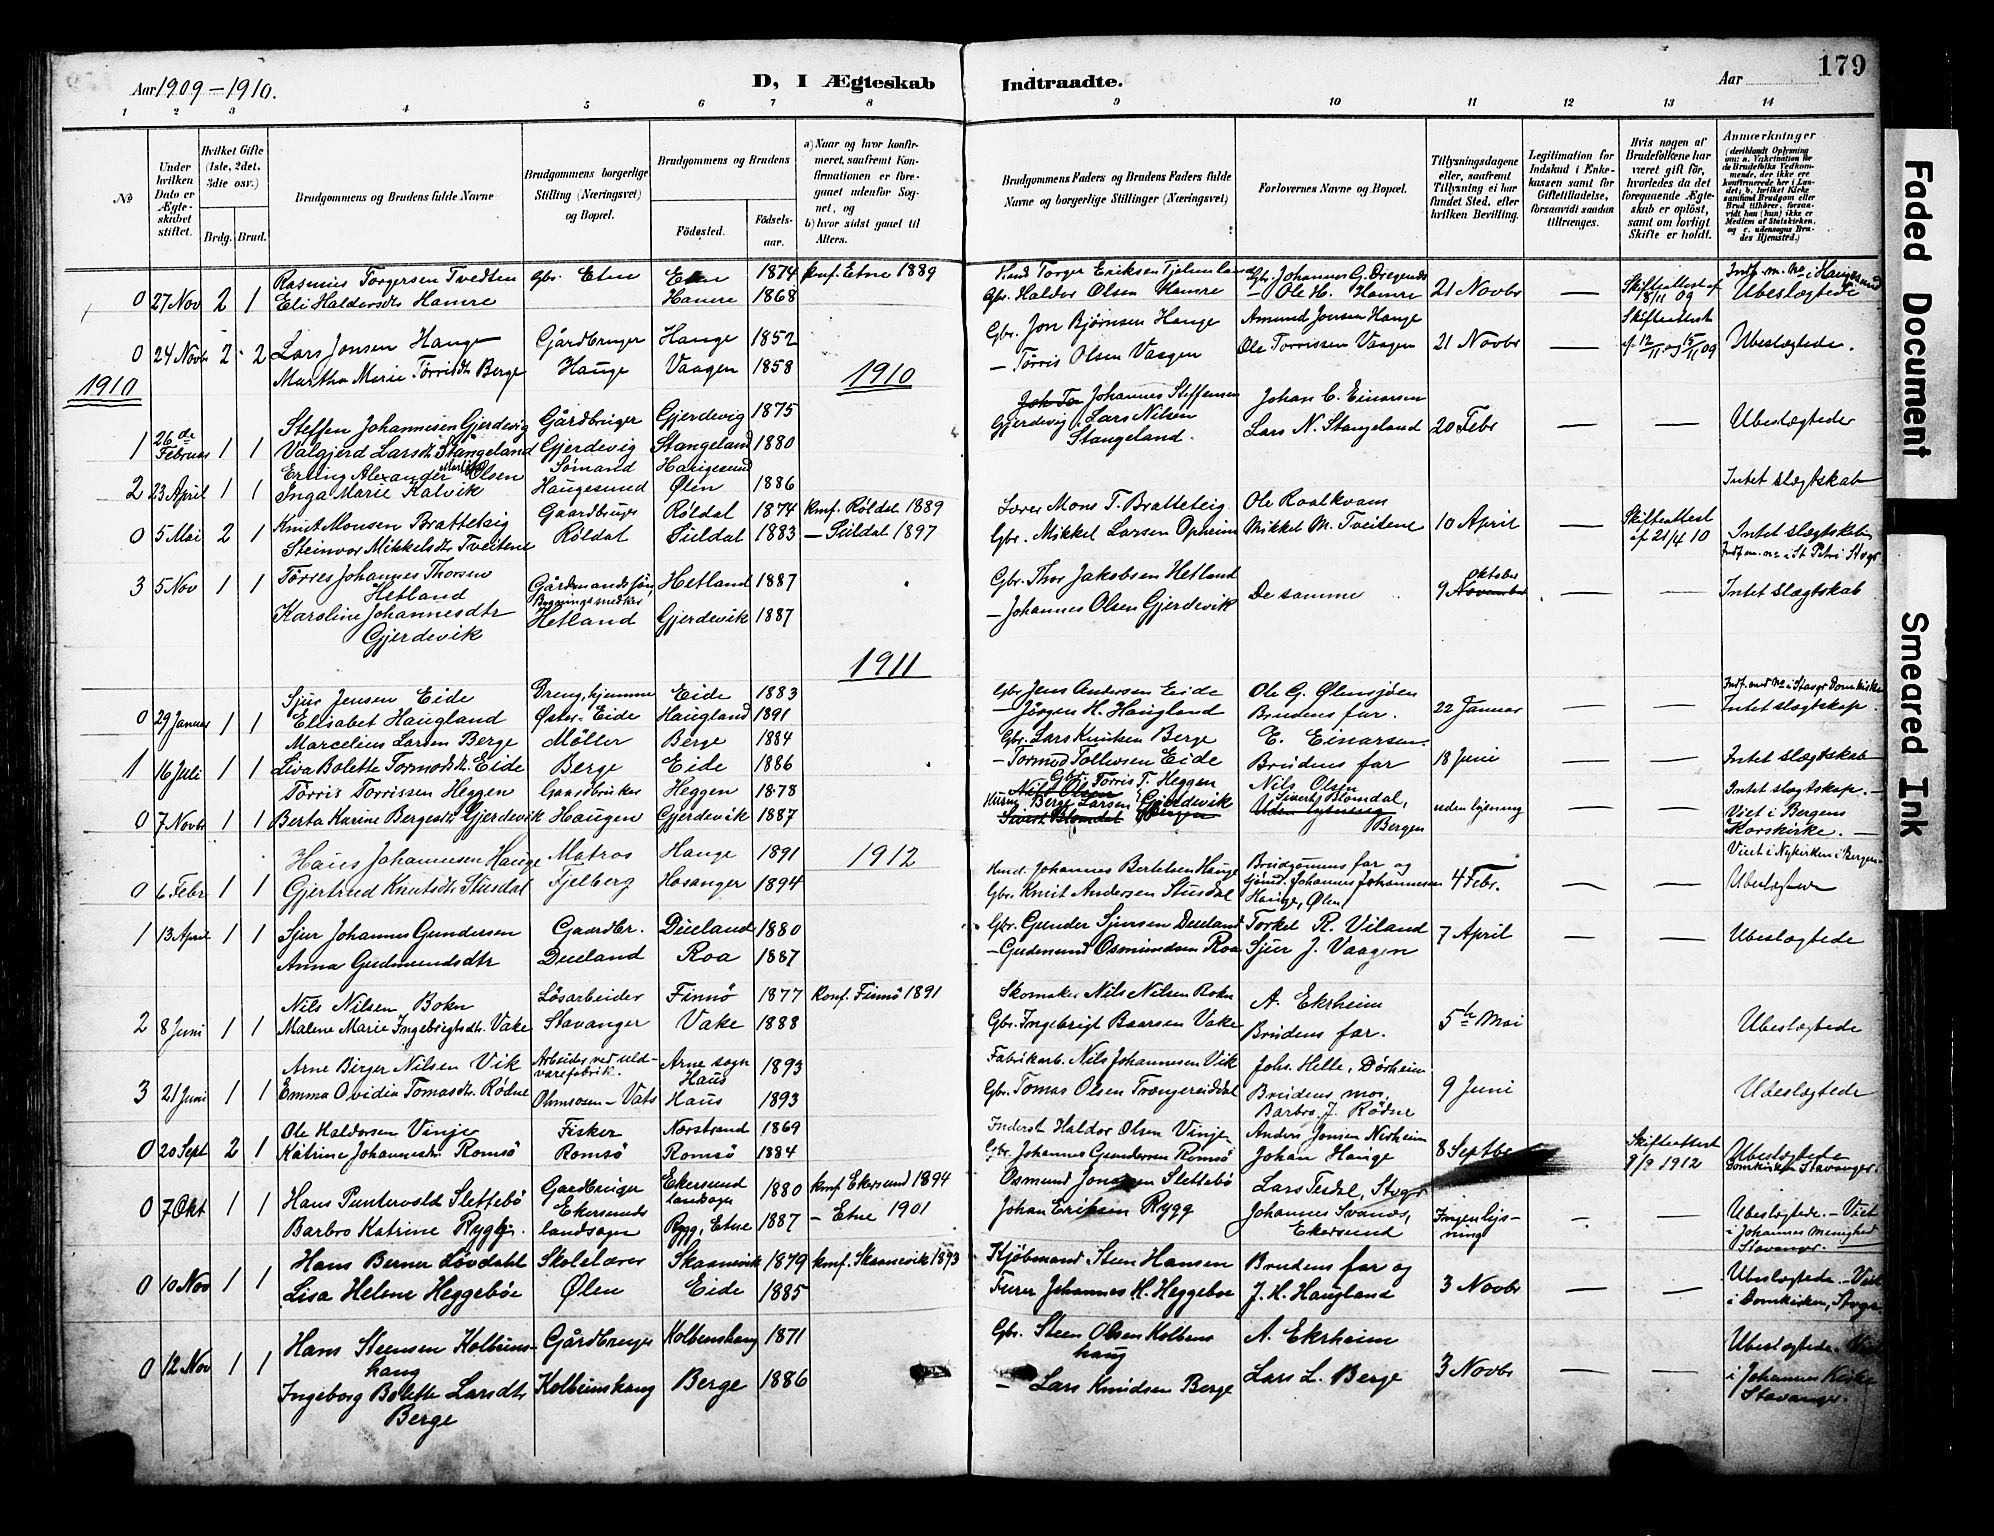 Aar 1909–1910.
D, I Ægteskab
Indtraadte.
Aar
179
1 2 3 4 5 6 7 8 9 10 11 12 13 14
№
Under hvilken Dato er Ægteskabet stiftet.
Hvilket Gifte (1ste, 2det, 3die osv.)
Brdg. Brud.
Brudgommens og Brudens fulde Navne
Brudgommens borgerlige Stilling (Næringsvei) og Bopæl.
Brudgommens og Brudens
Fødested. Fødselsaar.
a) Naar og hvor konfirmeret, saafremt Konfirmationen er foregaaet udenfor Sognet, og
b) hvor sidst gaaet til Alters.
Brudgommens Faders og Brudens Faders fulde Navne og borgerlige Stillinger (Næringsvei)
Forlovernes Navne og Bopæl.
Tillysningsdagene eller, saafremt Tillysning ei har fundet Sted, efter hvilken Bevilling.
Legitimation for Indskud i Enkekassen samt for Giftetilladelse, forsaavidt saadan tiltrænges.
Hvis nogen af Brudefolkene har været gift før, hvorledes da det foregaaende Ægteskab er opløst, samt om lovligt Skifte er holdt.
Anmærkninger
Rasmus Torgersen Tvedten Gbr. Etne Etne 1874 Konf. Etne 1889
0 27 Nov 2 1 Eli Haldorsdtr Hamre Hamre 1868
Gbr. Haldor Olsen Hamre Ole H. Hamre 21 Novbr — Skifteattest af 8/11 09 Ubeslægtede
0 24 Novb 2 2 Lars Jonsen Hauge Gårdbruger Hauge 1852
Martha Marie Tørrisdtr Berge Hauge Vaagen 1858
Gbr. Jon Bjørnsen Hauge Amund Jonsen Hauge Skifteattest
— Tørris Olsen Vaagen Ole Torrissen Vaagen 21 Novbr — Ubeslægtede.
1910
1910
Steffen Johannesen Gjerdevig Gårdbruger Gjerdevig 1875
1 26de Februar 1 1 Valgjerd Larsdtr Stangeland Gjerdevig Stangeland 1880
Johannes Steffensen Johan C. Einarsen
Gjerdevig, Lars Nilsen Stangeland. Lars N. Stangeland 20 Febr — — Ubeslægteder
Erling Alexander Olsen Sømand Haugesund
2 23 April 1 1 Inga Marie Kalvik Haugesund Ølen 1886 Intet slægtskab
Knut Monsen Bratteteig Gaardbruger Røldal 1874 Konf. Røldal 1889
0 5 Mai 2 1 Steinvor Mikkelsdtr Tveitene Røldal Suldal 1883 — Suldal 1897
Lærer Mons T. Bratteteig Ole Raalkvam
Gbr. Mikkel Larsen Opheim Mikkel M. Tveitene 10 April — Skifteattest af 21/4 10 Intet slægtskab
3 5 Nov 1 1 Tørres Johannes Thorsen Hetland Gårdmandssøn, Hetland 1887
Karoline Johannesdtr Gjerdevik Hetland Gjerdevik 1887
Gbr. Thor Jakobsen Hetland
— Johannes Olsen Gjerdevik De samme 9 November oktober — — Intet slægtskab
1911
Sjur Jensen Eide Dreng, hjemme Eide 1883
0 29 Januar 1 1 Elisabet Haugland Øster-Eide Haugland 1891
Gbr. Jens Andersen Eide Ole G. Ølensjøen
— Jørgen H. Haugland Brudens far. 22 Januar — — Intet slægtskap
Marcelius Larsen Berge Møller Berge 1884
1 16 Juli 1 1 Lisa Bolette Tormodsdtr. Eide Berge Eide 1886
Gbr. Lars Knutsen Berge E. Einarsen.
— Tormod Tollevsen Eide Brudens far 18 Juni — — Intet slægtskab
Tørris Torrissen Heggen Gaardbruker Heggen 1878
0 7 Novbr 1 1 Berta Karine Bergesdtr Gjerdevik Haugen Gjerdevik 1887
Gbr. Torris T. Heggen Nils Olsen
Berge Larsen Gjerdevik Sivert Blomdal, Bergen uden lysning
Intet slægtskap. — Viet i Bergens Korskirke. —
1912
Hans Johannesen Hauge Matros Hauge 1891
0 6 Febr 1 1 Gjertrud Knutsdtr Stusdal Fjelberg Hosanger 1894
Johannes Bertelsen Hauge Brudgomens far og
Gbr. Knut Andersen Stusdal Johannes Johannesen Hauge, Ølen 4 Febr. — — Viet i Nykirken i Bergen. Ubeslægtede
1 13 April 1 1 Sjur Johannes Gundersen Gaardbr. Dueland 1880
Anna Gudmundsdtr Dueland Roa 1887
Gbr. Gunder Sjursen Dueland Torkel R. Viland 7 April — — Ubeslægtede
— Gudmund Osmundsen Roa Sjur J. Vaagen
Nils Nilsen Bokn Løsarbeider Finnø 1877 Konf. Finnø 1891
2 8 Juni 1 1 Malene Marie Ingebrigtsdtr. Vake Stavanger Vake 1888
Skomaker Nils Nilsen Bokn A. Ekrheim
Gbr. Ingebrigt Baarsen Vake Brudens far. 5te Mai Ubeslægtede
Arne Birger Nilsen Vik Arbeider ved uldvarefabrik. Arne sogn Haus 1893
3 21 Juni 1 1 Emma Ovidia Tomasdtr. Rødne Ølmsosen – Vats Haus 1893
Fabrikarb. Nils Johannesen Vik Johs. Helle, Dørheim
Gbr. Tomas Olsen Brudens mor, Barbro J. Rødne 9 Juni Ubeslægtede
Ole Haldorsen Vinje Fisker Norstrand 1869
0 20 Sept 2 1 Katrine Johannesdtr Romsø Romsø Romsø 1884
Inderst Haldor Olsen Vinje Anders Jonsen Nerheim
Gbr. Johannes Gundersen Romsø Johan Hauge 8 Septbr Skifteattest 9/9 1912 Ubeslægtede
Domkirken Stavanger.
0 7 Okt 1 1 Hans Puntervold Slettebø Gardbruger Ekersund landsogn 1880 Konf Ekersund 1894
Barbro Katrine Rygg Ekersunds landsogn Rygg, Etne 1887 — Etne 1901
Osmund Slettebø Lars Tesdal, Stvgr
Johan Eriksen Rygg Johannes Svanes, Ekersund Ingen lysning — — Ubeslægtede. – Viet i Johannes menighed Stavanger.
Hans Berner Løvdahl Skolelærer Skaanevik 1879 Konf. Skaanevik 1893
0 10 Nov 1 1 Lisa Helene Heggebøe Ølen Eide 1885
Kjøbmand Steen Hansen Brudens far og
Furer Johannes H. Heggeboe J. H. Haugland 3 Novbr — — Ubeslægtede. – Viet i Domkirken, Stvgr
0 12 Nov 1 1 Hans Steensen Kolbeinshaug Gårdbruger Kolbenshaug 1871
Ingeborg Bolette Larsdtr Berge Kolbeinshaug Berge 1886
Gbr. Steen Olsen Kolbenshaug A. Ekrheim
— Lars Knudsen Berge Lars L. Berge 3 Novbr — — Ubeslægtede. Viet i Johannes Kirke Stavanger.
Faded Document
Smeared Ink